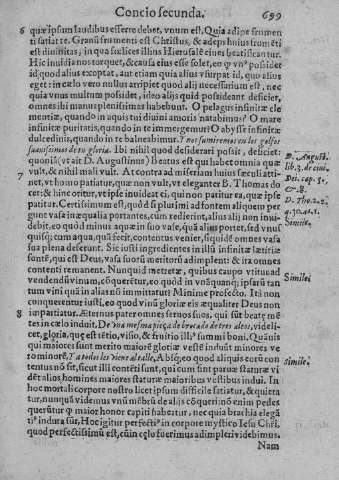 Concio secunda. 699
6 quæ ipsum laudibus efferre debet, vnum est, Quia adipe frumen
ti satiat te. Granū frumenti est Christus, & adeps huius frumēti
est diuinitas, in qua sœlices illius Hierusalē eius beatificantur.
Hic inuidia nos torquet, & causa eius esse solet, eo ꝙ vnº possidet
id quod alius exoptat, aut etiam quia alius vsurpat id, quo alius
eget: in cælo vero nullus arripiet quod alij necessarium est, nec
quia vnus multum possidet, ideo alijs quid possideant deficiet,
omnes ibi manus plenissimas habebunt. O pelagus infinitæ cle
mentiæ, quando in aquis tui diuini amoris natabimus? O mare
infinitæ puritatis, quando in te immergemur? O abysse infinitæ
dulcedinis, quando in te balneabimur? Y nos sumiremos en los golfos
suauissimos de tu gloria. Ibi nihil quod desiderari possit, deficiet:
quoniā (vt ait D. Augustinus) Beatus est qui habet omnia quæ
7 vult, & nihil mali vult. At contra ad miseriam huius sæculi atti-
net, vt homo patiatur, quæ non vult, vt eleganter B. Thomas do
cet: & hinc oritur, vt ipse inuideat ei, qui non patitur ea, quæ ipse
patitur. Certissimum est, quòd si plurimi ad fontem aliquem per
gunt vasa inæqualia portantes, cum redierint, alius alij non inui-
debit, eo quòd minus aquæ in suo vase, quā alius portet, sed vnus
quisq; cum aqua, quā fecit, contentus veniet, siquidē omnes vasa
sua plena deserunt. Sic iusti ingredientes in illū infinitæ lætitiæ
fontē, qui est Deus, vasa suorū meritorū adimplent: & ita omnes
contenti remanent. Nunquid metretæ, quibus caupo vtitur ad
vendendū vinum, cōqueretur, eo quòd in vnāquamq; ipsarū tan
tum vini quā in alias nō immittatur? Minime profecto. Ita non
conquerentur iusti, eo quod vinū gloriæ eis æqualiter Deus non
8 impartiatur. Æternus pater omnes seruos suos, qui sūt beatę mē
tes in cælo induit, De vna mesma pieça de brocado de tres altos, videli-
cet, gloria, quę est tētio, visio, & fruitio illiº summi boni. Quānis
qui maiores sunt merito maiorē gloriæ vestē induūt minores ve
ro minorē, Y a todos les viene al talle, Absq; eo quod aliquis eorū cun
tentus nō sit, sicut illi contēti sunt, qui cum sint paruæ staturæ vi
dēt alios homines maiores staturæ maioribus vestibus indui. In
hoc mortali corpore nostro licet ipsum difficile satietur, & quieta
tur, nunquā videmus vnū mēbrū de alijs cōqueri nō enim pedes
querūtur ꝙ maior honor capiti habeatur, nec quia brachia elegā
tiº induta sūt, Hoc igitur perfectiº in corpore mystico Iesu Chri,
quod perfectissimū est, cūm in cælo fuerimus adimpleri videbimus.
Nam
D. August.
lib. 3. de ciui.
Dei. cap. 5.
& 8.
D. Tho. 2. 2.
q. 30. ar. 1.
Simile.
Simile.
Simile.